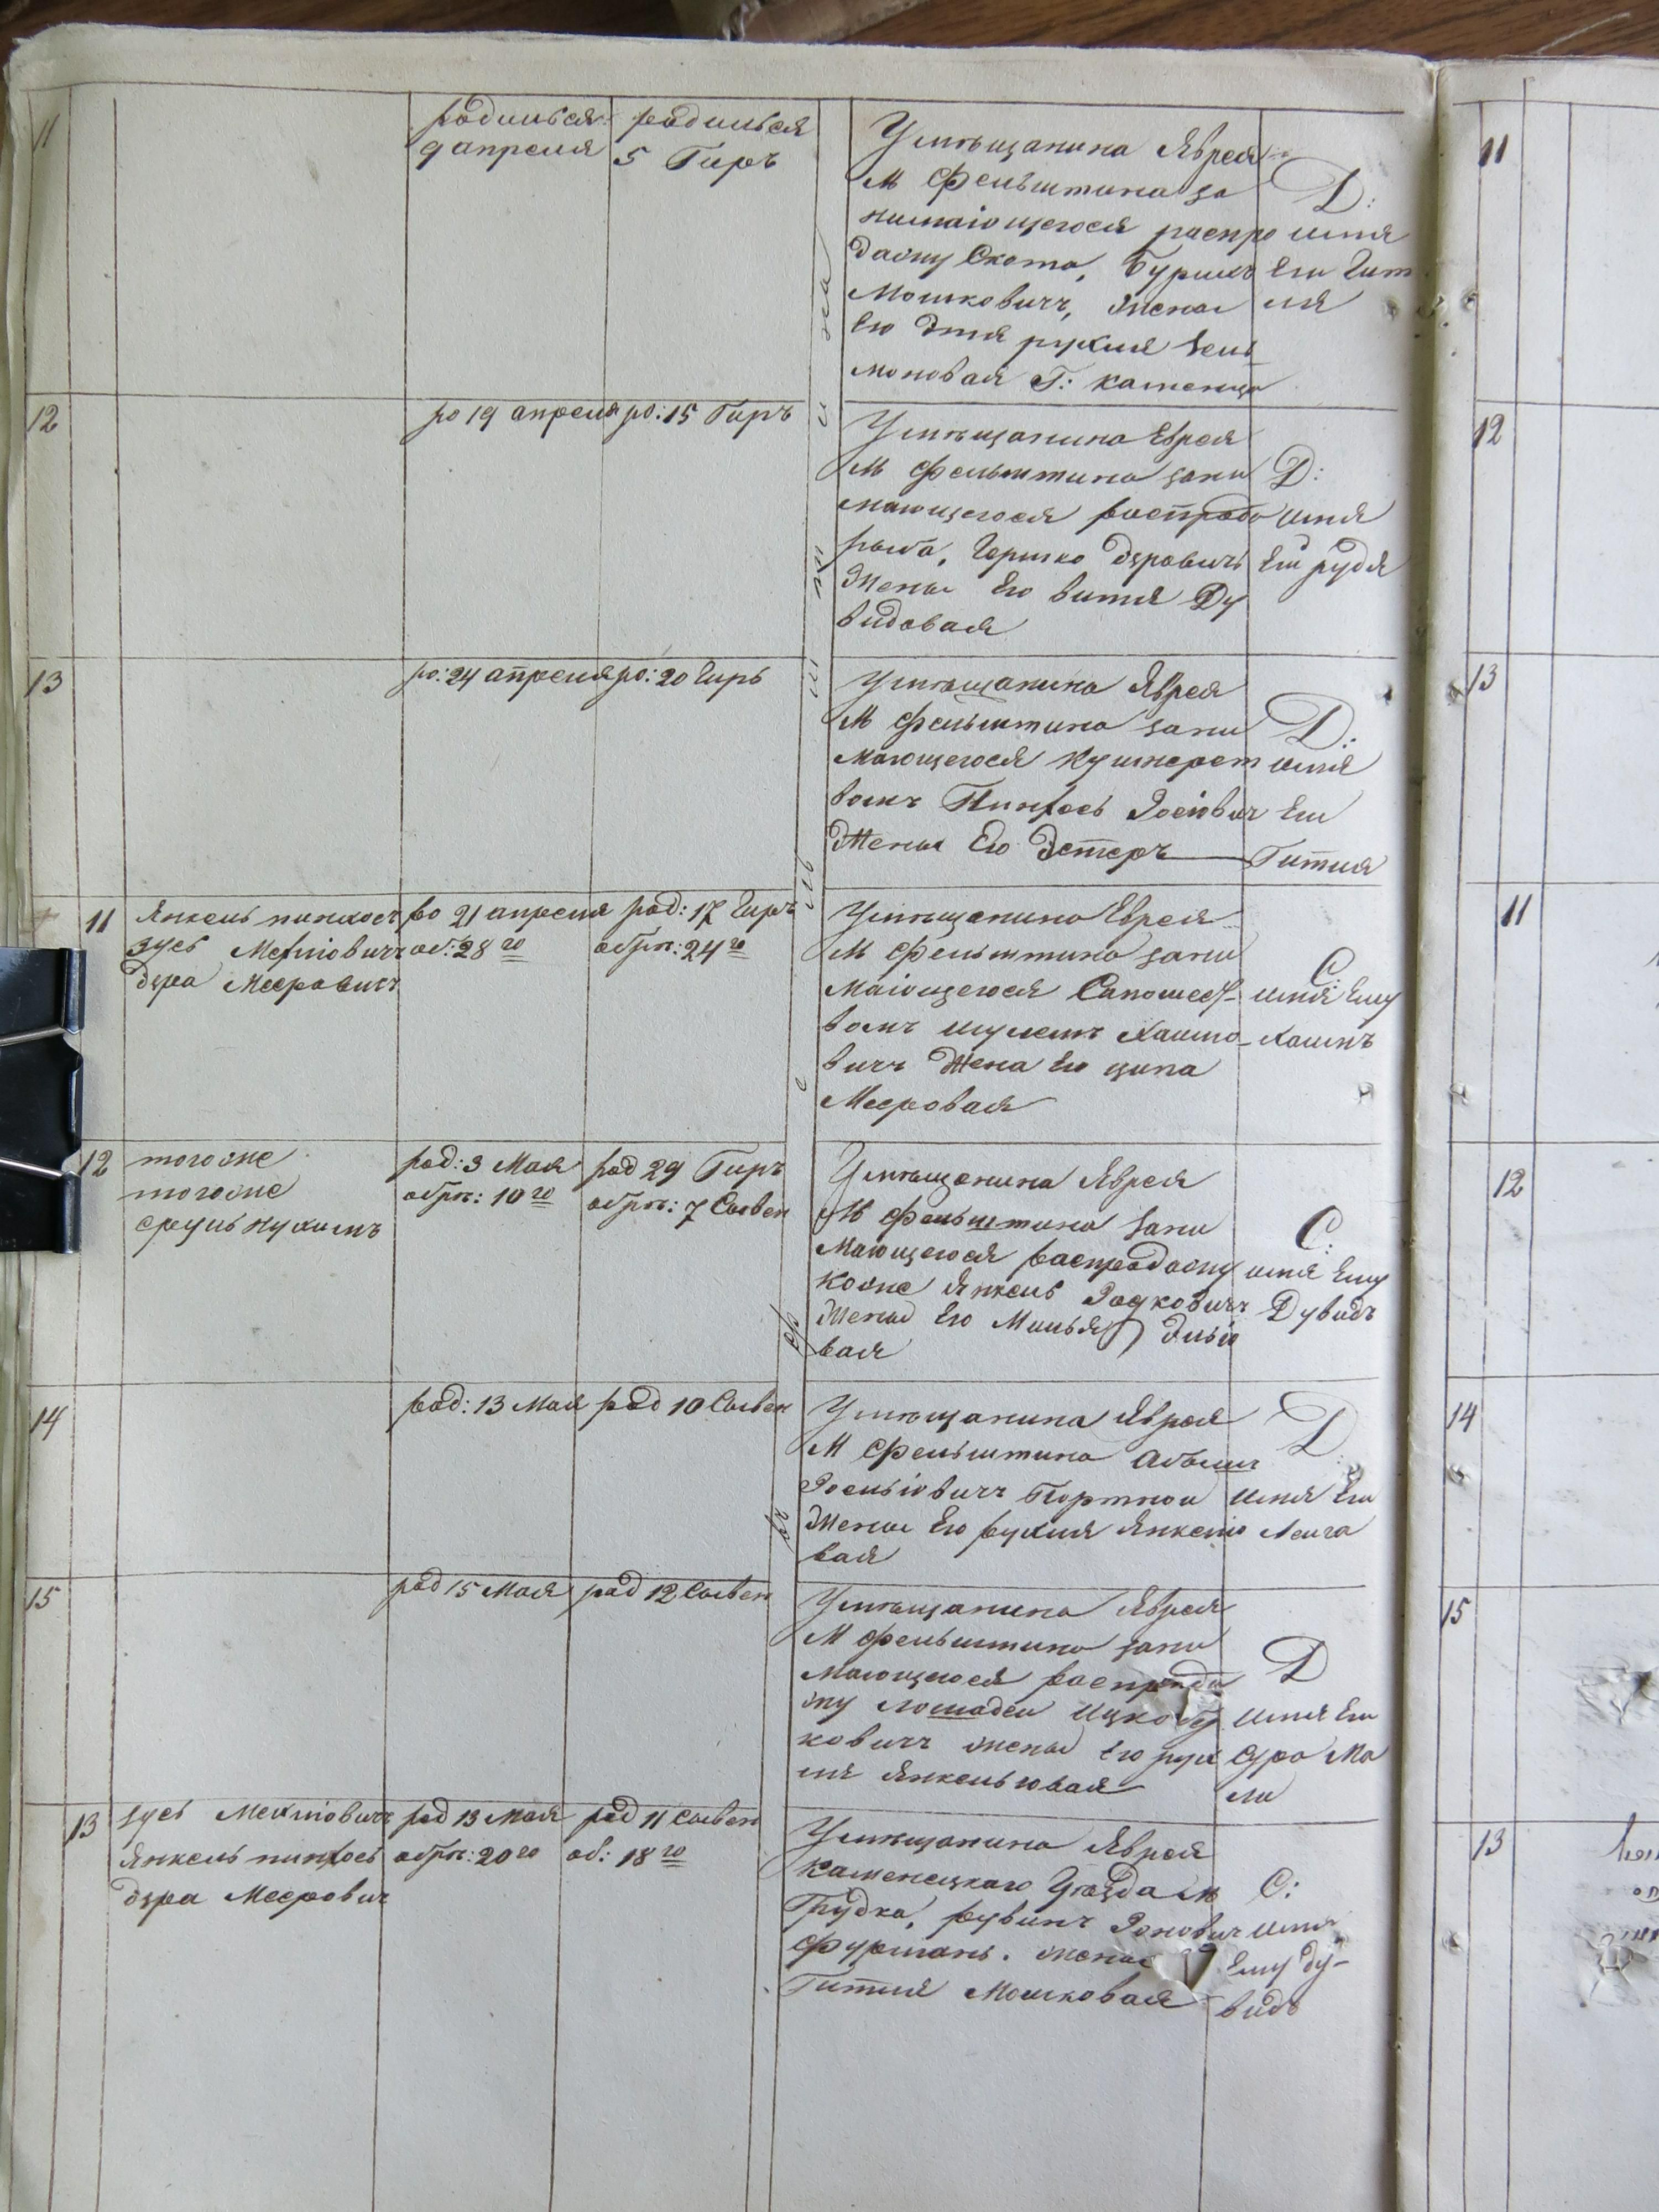 11
родилься
9 апреля
родилься
5 Гиръ
Умѣщанина Яврея
М Фельштина за
нимаіощегося распро
дажу Скота,
Мошковичъ, Жены
Его Этя рухля Зель
моновая Г: каменца
Д:
имя
Еи Гит
ля
12
ро 19 апреля
ро: 15 Гиръ
Умѣщанина Еврея
М Фельштина зани
мающегося распродо
рыба, Гершко Дзравичъ
Жены Его витя Ду
видовая
Д:
имя
Еи рудя
13
ро: 24 апреля
ро: 20 Гиръ
Умѣщанина Яврея
М Фельштина зани
мающегося Кушнерст
вомъ Пинхось Іосіовичъ
Жены Его Эстеръ
Д:
имя
Еи
Гитля
11
Янкель пинхось
зусь Мехліовичъ
дзра Мееровичъ
ро 21 апреля
об: 28 го
род: 17 Гиръ
обрѣ: 24 го
Умѣщанина Еврея
М Фельштина зани
маіощегося Сапожест-
вомъ шулемъ Хаимо-
вичъ Жена Его ципа
Мееровая
С:
имя Ему
Хаимъ
12
тогоже
тогоже
сруль нухимъ
род: 3 Мая
обрѣ: 10 го
род 29 Гиръ
обрѣ: 7 Сывен
Умѣщанина Яврея
М Фельштина зани
мающегося распродажу
коже Янкель Іоцковичъ
Жены Его Манья Эльіо
вая
С:
имя Ему
Дувидъ
14
род: 13 Мая
род 10 Сывен
Умѣщанина Яврея
М Фельштина
Іосьіовичъ Портнои
Жены Его рухля Янкеліо
вая
Д
имя Еи
Леига
15
род 15 Мая
род 12 Сывен
Умѣщанина Яврея
М фельштина зани
мающегося распрода
жу лошадеи Ицко бер
ковичъ жены Его рух
ля Янкельовая
Д
имя Еи
Сура Ма
ли
13
зусь Мехліовичъ
Янкель пинхось
дзра Мееровичъ
род 13 Мая
обрѣ: 20 го
род 11 сывен
об: 18 го
Умѣщанина Яврея
Каменецкаго Уѣзда м
Грудка, рувинъ Іоновичъ
Фурмань. жены
Гитля Мошковая
С:
имя
Ему ду-
видъ
11
12
13
11
12
14
15
13